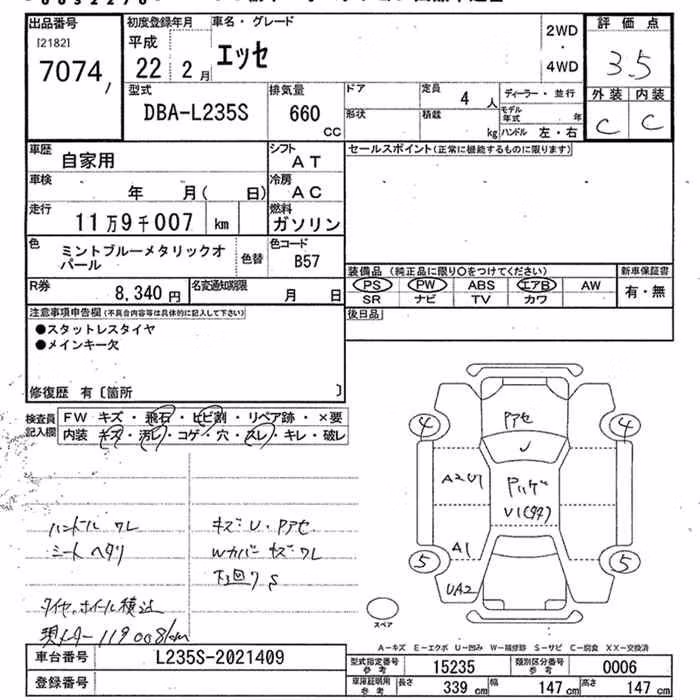 出品番号
[2182]
7074
初度登録年月
平成
22 2月
車名・グレード
エッセ
2WD
・
4WD
評価点
3.5
外装 内装
C C
型式
DBA-L235S
排気量
660
CC
ドア
形状
定員
4 人
積載
kg
ディーラー・並行
モデル年式 年
ハンドル 左・右
車歴
自家用
シフト
AT
車検
年 月( 日)
冷房
AC
走行
11万9千007 km
燃料
ガソリン
色
ミントブルーメタリックオ
パール
色替
色コード
B57
R券
8,340円
名変通知期限
月 日
セールスポイント(正常に機能するものに限ります)
装備品 (純正品に限り○をつけてください)
PS PW ABS エアB AW
SR ナビ TV カワ
新車保証書
有・無
後日品
注意事項申告欄(不具合内容等は具体的に記入して下さい)
●スタットレスタイヤ
●メインキー欠
修復歴 有〔箇所 〕
検査員
記入欄
FW キズ・飛石・ヒビ割・リペア跡・×要
内装 キズ・汚レ・コゲ・穴・スレ・キレ・破レ
ハンドル ワレ
シート ヘタリ
キズ U・Pアセ
Wカバー キズ ワレ
下回り S
タイヤ、ホイール積込
現メーター 119008km
Pアセ
4 4
A2U1
Pハゲ
U1(タタ)
A1
5 5
UA2
スペア
A-キズ E-エクボ U-凹み W-補修跡 S-サビ C-腐食 XX-交換済
車台番号
L235S-2021409
登録番号
型式指定番号
参考
15235
類別区分番号
参考
0006
車庫証明用
参考
長さ 339 cm
幅 147 cm
高さ 147 cm